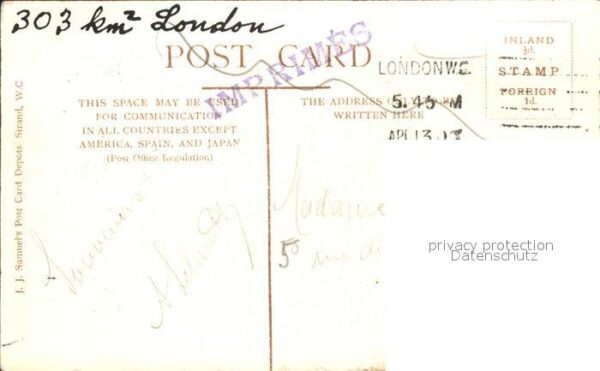 303 km² London
POST CARD
IMPRIMÉS
INLAND
½d.
STAMP
FOREIGN
1d.
LONDON W.C.
5.45 PM
APL 13 0
THIS SPACE MAY BE USED
FOR COMMUNICATION
IN ALL COUNTRIES EXCEPT
AMERICA, SPAIN, AND JAPAN
(Post Office Regulation)
THE ADDRESS
WRITTEN HERE
J. J. Samuel's Post Card Depots, Strand, W.C
Souvenirs
Madame
5
rue d
privacy protection
Datenschutz